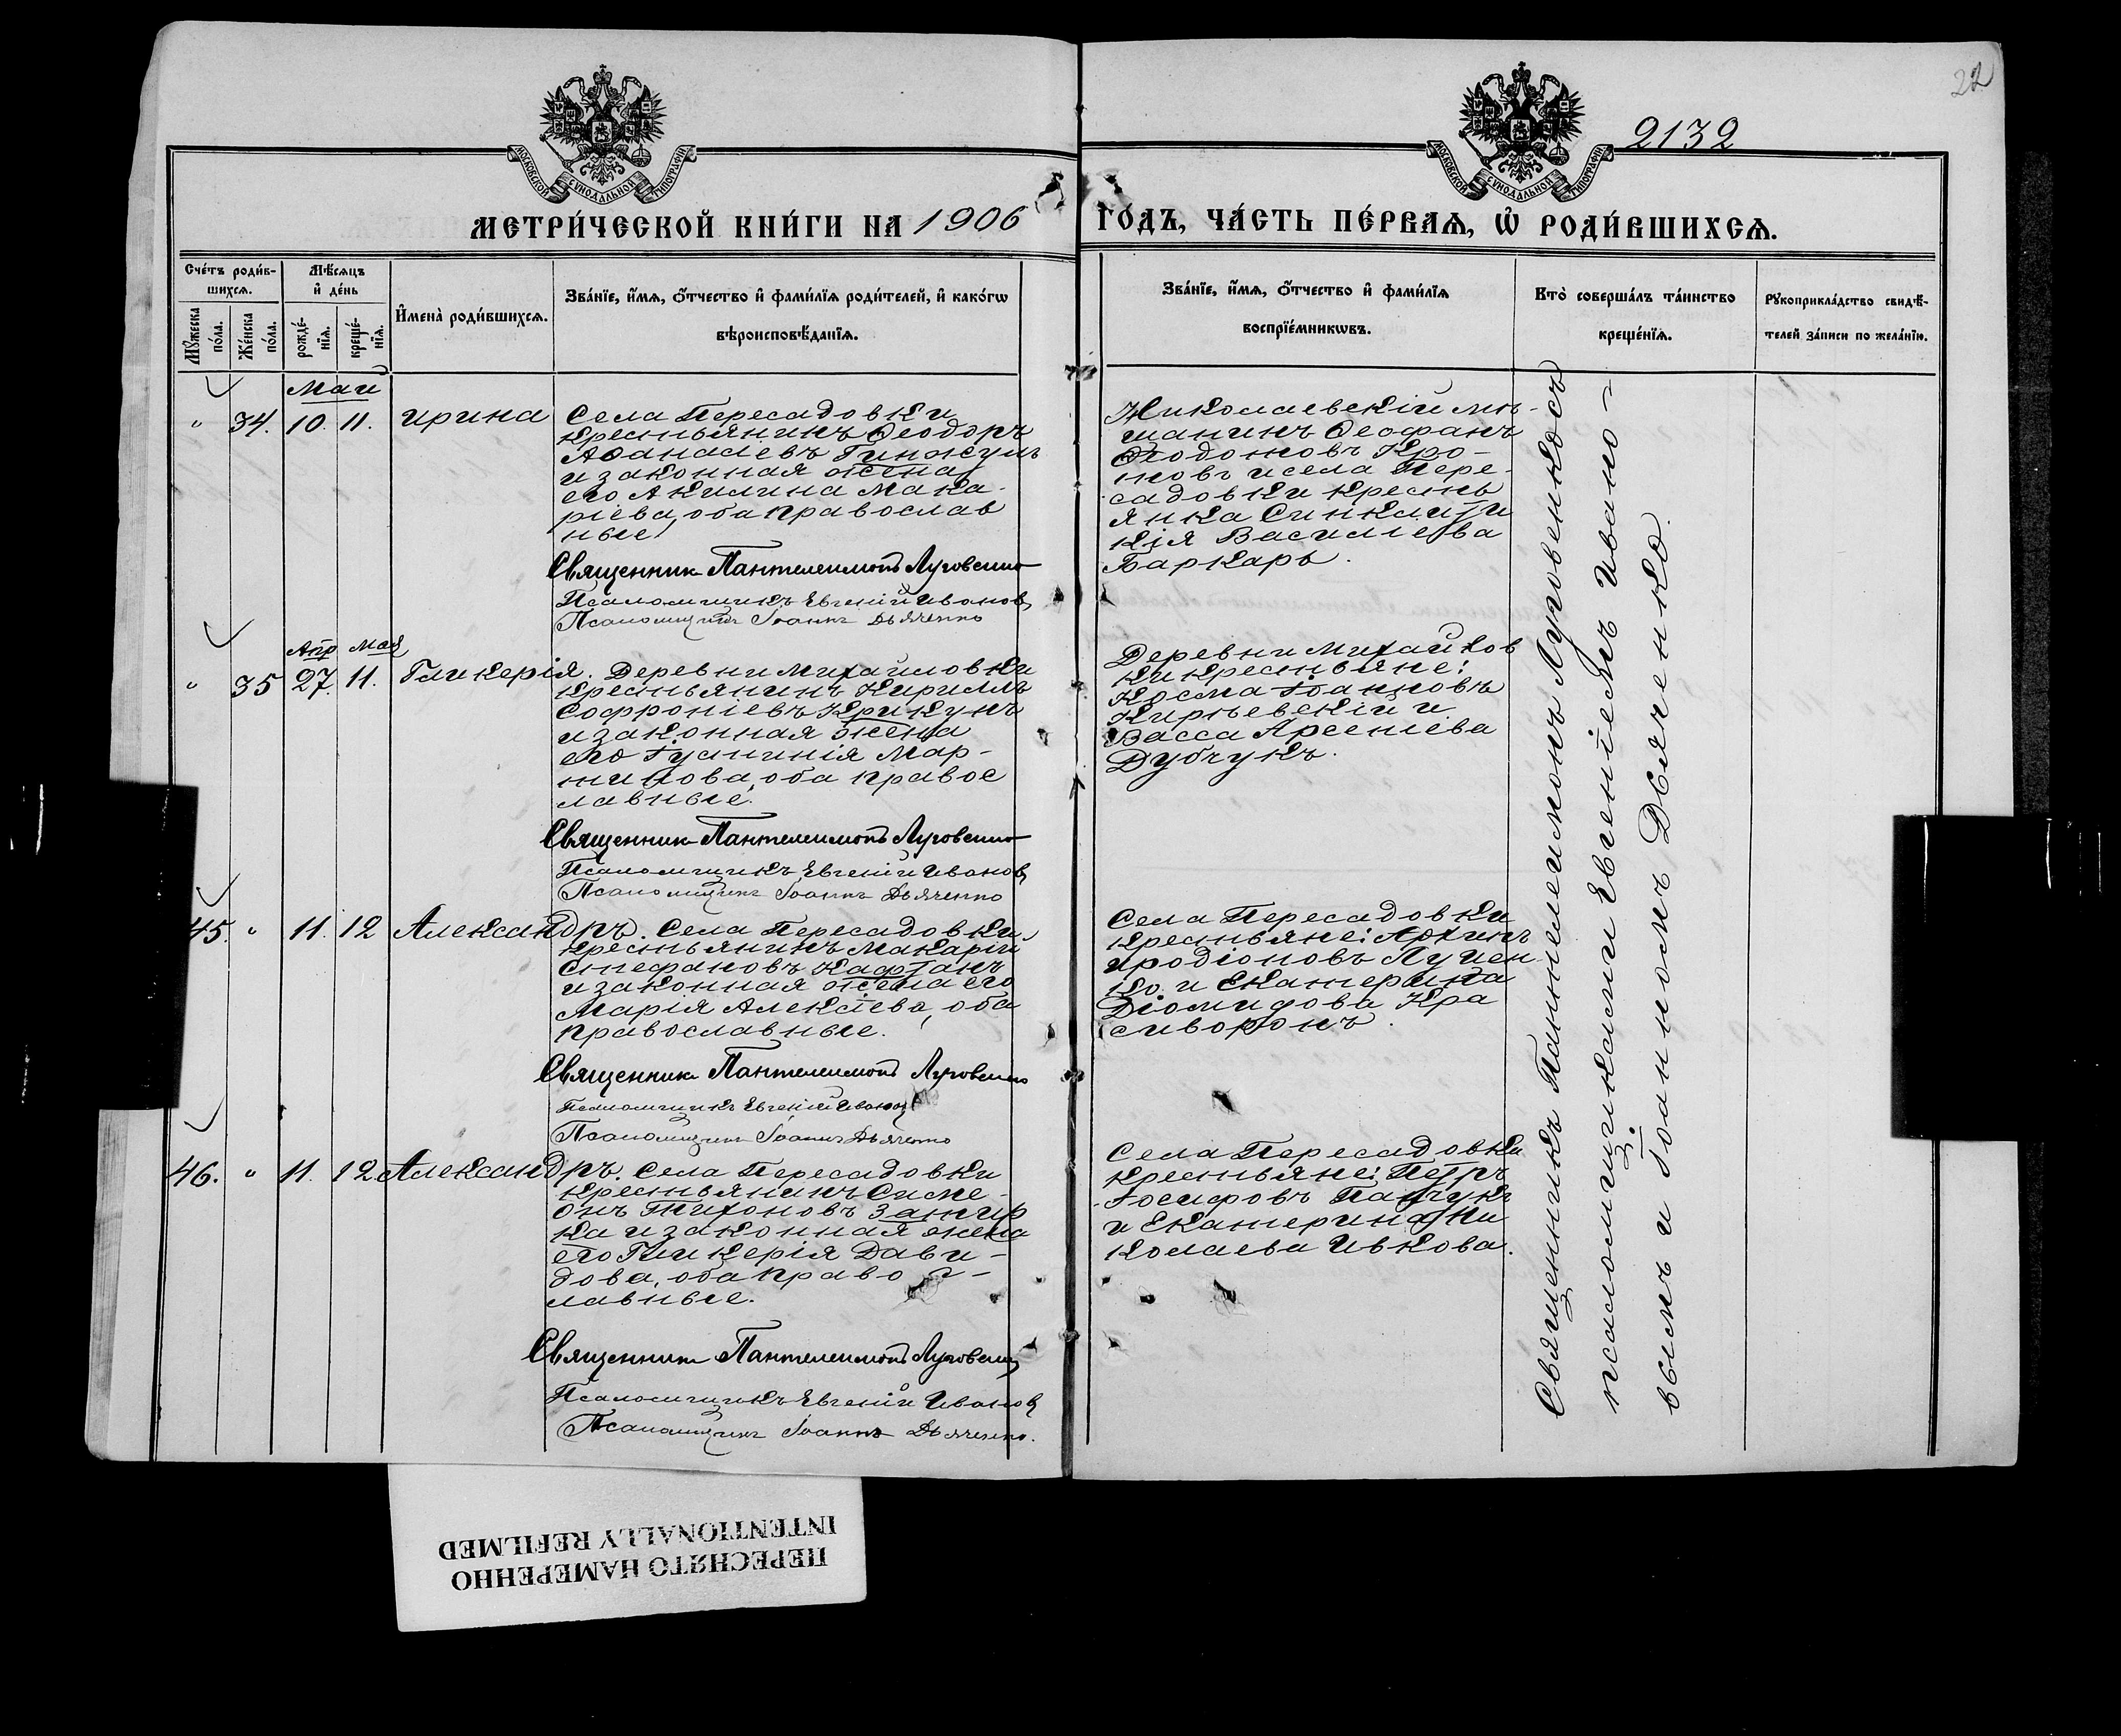 22
2132
МОСКОВСКОЙ СѴНОДАЛЬНОЙ ТИПОГРАФІИ
МОСКОВСКОЙ СѴНОДАЛЬНОЙ ТИПОГРАФІИ
МЕТРИ́ЧЕСКОЙ КНИ́ГИ НА 1906
ГО́ДЪ, ЧА́СТЬ ПЕ́РВАѦ, Ѡ҆ РОДИ́ВШИХСѦ.
Сче́тъ роди́в-
шихсѧ.
Мꙋ́жеска
по́ла.
Же́нска
по́ла.
Мѣ́сѧцъ
и҆ де́нь
рожде́-
нїѧ.
креще́-
нїѧ.
И҆мена̀ роди́вшихсѧ.
Зва́нїе, и҆́мѧ, ѻ҆́тчество и҆ фами́лїѧ роди́телей, и҆ како́гѡ
вѣроисповѣ́данїѧ.
Зва́нїе, и҆́мѧ, ѻ҆́тчество и҆ фами́лїѧ
воспрїе́мникѡвъ.
Кто̀ соверша́лъ та́инство
креще́нїѧ.
Рꙋкоприкла́дство свидѣ́-
телей за́писи по жела́нїю.
Май
" 34. 10. 11. Ирина
Села Пересадовки
крестьянинъ Ѳеодоръ
Аѳанасіевъ Гинжулъ
и законная жена
его Акилина Мака-
ріева, оба православ
ные
Священникъ Пантелеимонъ Луговенко
Псаломщикъ Евгеній Ивановъ
Псаломщикъ Іоаннъ Дьяченко
Николаевскій мѣ-
щанинъ Ѳеофанъ
новъ и села Пере-
садовки кресть
янка Синклити
кія Васильева
Баркарь.
Апр Мая
" 35 27. 11. Гликерія.
Деревни Михайловки
крестьянинъ Кириллъ
Софроніевъ Крикунъ
и законная жена
его Іустинія Мар-
тинова, оба правос
лавные.
Священникъ Пантелеимонъ Луговенко
Псаломщикъ Евгеній Ивановъ
Псаломщикъ Іоаннъ Дьяченко
Деревни Михайлов
ки крестьяне:
Косма Іоанновъ
Кирѣевскій и
Васса Арсеніева
Дубчукъ.
45. " 11. 12 Александръ.
Села Пересадовки
крестьянинъ Макарій
Стефановъ Кафтанъ
и законная жена его
Марія Алексіева, оба
православные.
Священникъ Пантелеимонъ Луговенко
Псаломщикъ Евгеній Ивановъ
Псаломщикъ Іоаннъ Дьяченко
Села Пересадовки
крестьяне: Архипъ
Иродіоновъ Луцен
ко и Екатерина
Діомидова Кра
сиворонъ.
46. " 11. 12 Александръ.
Села Пересадовки
крестьянинъ Симе-
онъ Тихоновъ Затир
ка и законная жена
его Гликерія Дави-
дова, оба правос-
лавные.
Священникъ Пантелеимонъ Луговенко
Псаломщикъ Евгеній Ивановъ
Псаломщикъ Іоаннъ Дьяченко.
Села Пересадовки
крестьяне: Петръ
Іосифовъ
и Екатерина Ни
колаева Ивкова.
Священникъ Пантелеимонъ Луговенко съ
псаломщиками Евгеніемъ Ивано-
вымъ и Іоанномъ Дьяченко.
ПЕРЕСНЯТО НАМЕРЕННО
INTENTIONALLY REFILMED